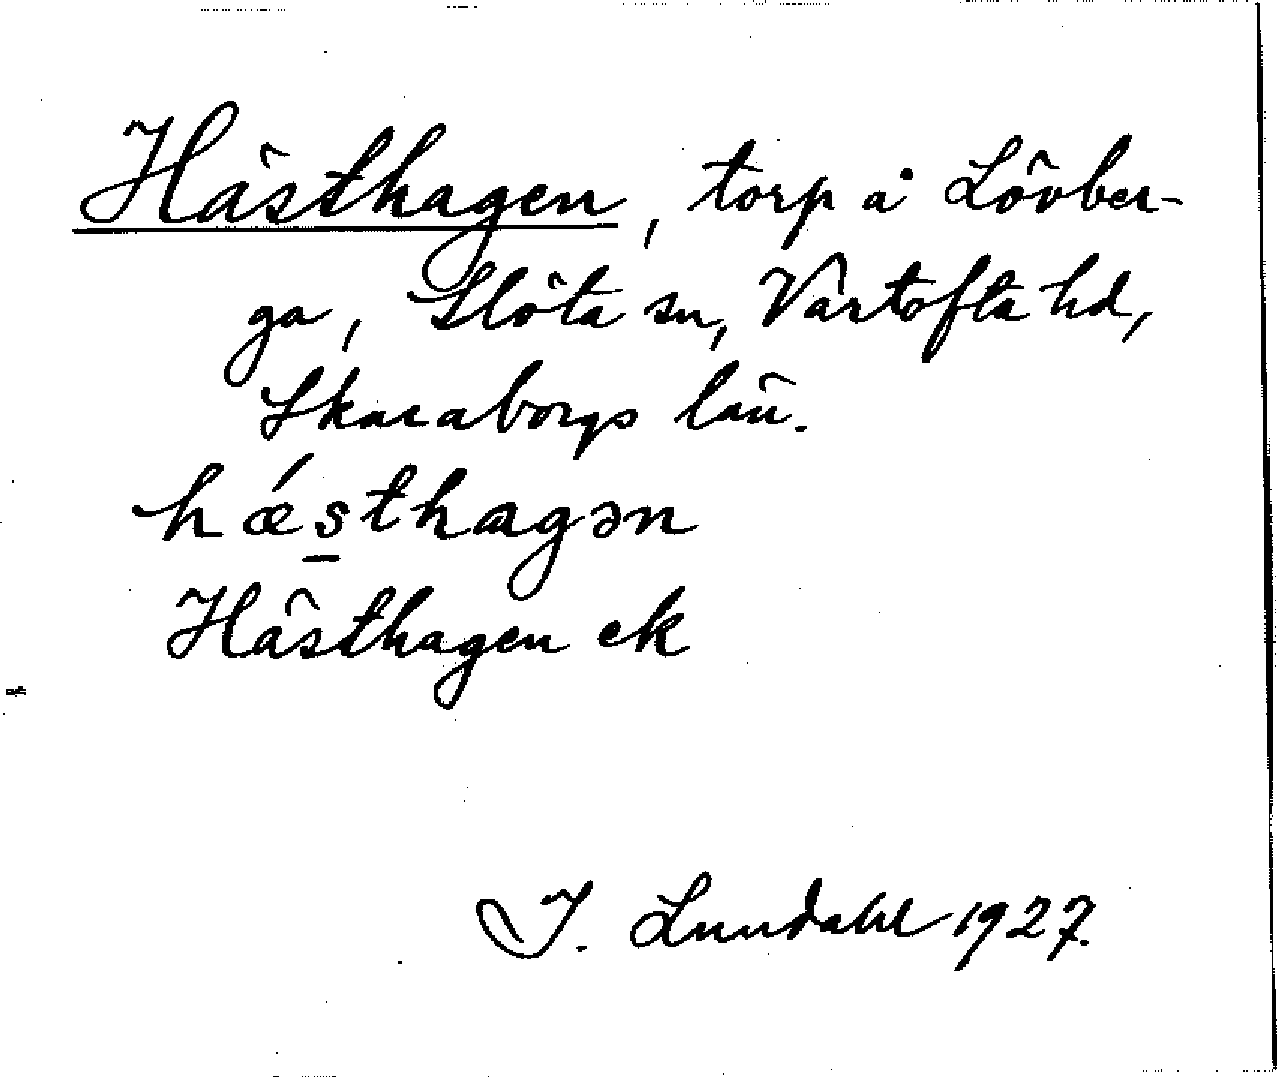 Hästhagen, torp å Lövber-
ga, Slöta sn, Vartofta hd,
Skaraborgs län.
hǽs̠thagən
Hästhagen ek
I. Lundahl 1927.